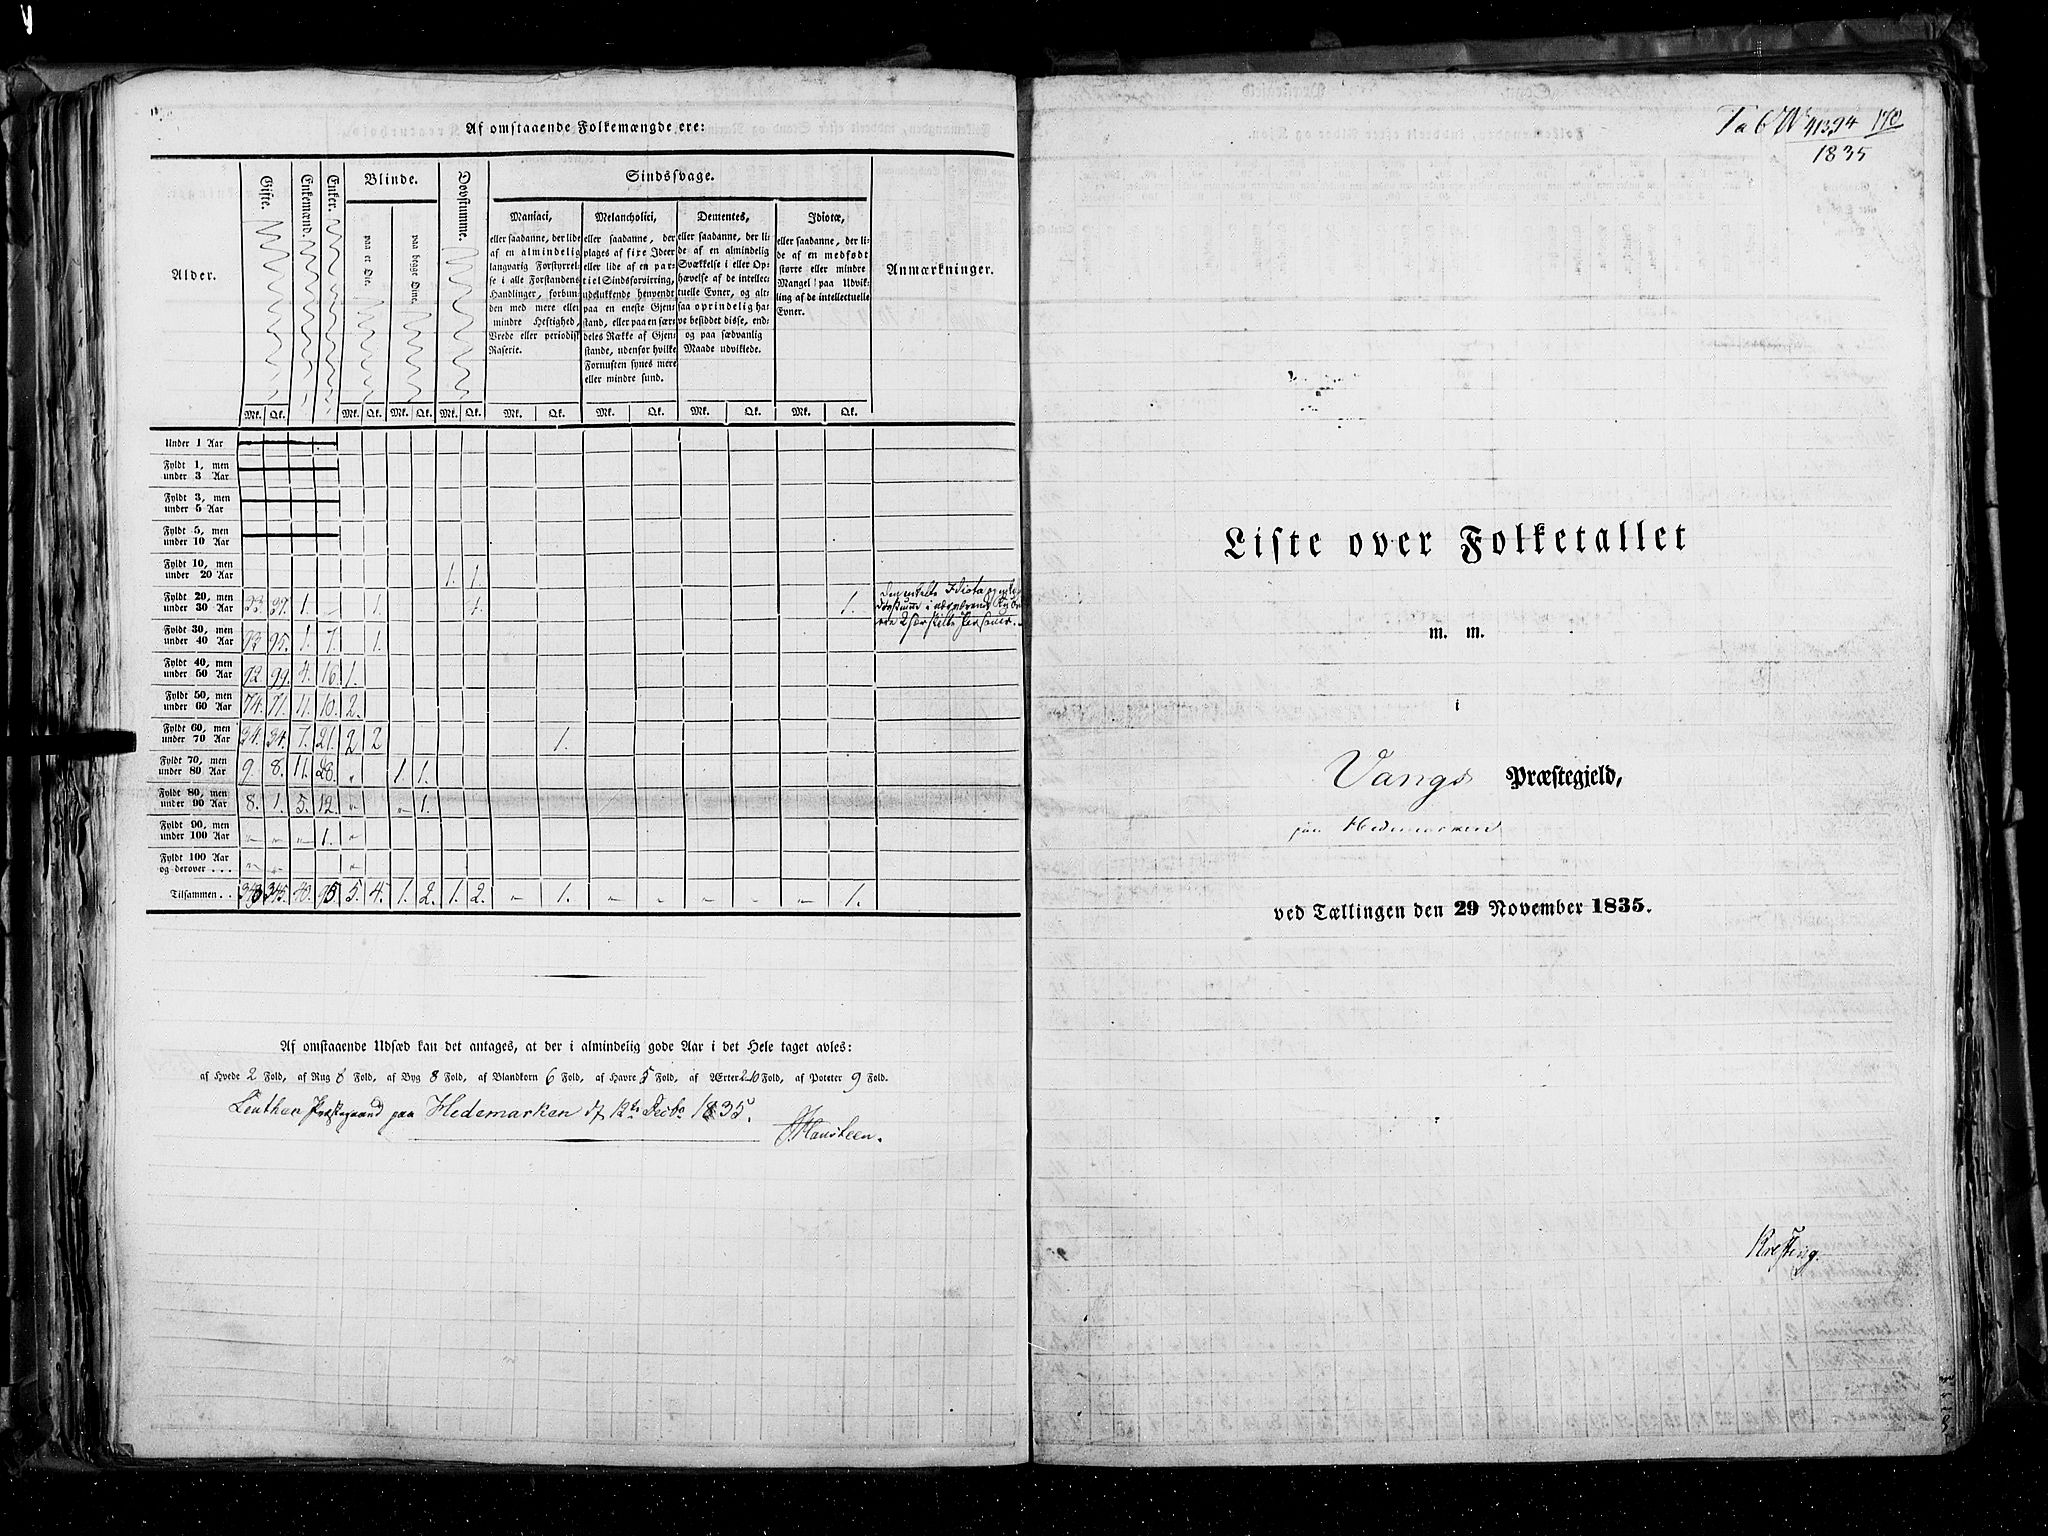 Af omstaaende Folkemængde ere:
Alder.
Gifte.
Enkemænd.
Enker.
Blinde.
paa et Øie.
paa begge Øine.
Døvstumme.
Sindssvage.
Maniaci,
eller saadanne, der lide
af en almindelig
langvarig Forstyrrel-
se i alle Forstandens
Handlinger, forbun-
den med mere eller
mindre Heftighed,
Vrede eller periodisk
Raserie.
Melancholici,
eller saadanne, der
plages af fixe Ideer
eller lide af en par-
tiel Sindsforvirring,
udelukkende henvendt
paa en eneste Gjen-
stand, eller paa en sær-
deles Række af Gjen-
stande, udenfor hvilke
Fornuften synes mere
eller mindre sund.
Dementes,
eller saadanne, der li-
de af en almindelig
Svækkelse i eller Op-
hævelse af de intellec-
tuelle Evner, og alt-
saa oprindelig ha-
ve besiddet disse, end-
og paa sædvanlig
Maade udviklede.
Idiotæ,
eller saadanne, der li-
de af en medfødt
større eller mindre
Mangel paa Udvik-
ling af de intellectuelle
Evner.
Anmærkninger.
Mk. Qk. Mk. Qk. Mk. Qk. Mk. Qk. Mk. Qk. Mk. Qk. Mk. Qk. Mk. Qk.
Under 1 Aar
Fyldt 1, men
under 3 Aar
Fyldt 3, men
under 5 Aar
Fyldt 5, men
under 10 Aar
Fyldt 10, men
under 20 Aar 1. 1.
Fyldt 20, men
under 30 Aar 1. – 1. 1. 1.
Fyldt 30, men
under 40 Aar 95. 1. 7. 1.
Fyldt 40, men
under 50 Aar 92. 99. 4. 16. 1.
Fyldt 50, men
under 60 Aar 74. 71. 10. 2.
Fyldt 60, men
under 70 Aar 34. 34. 7. 21. 2 2 1.
Fyldt 70, men
under 80 Aar 9. 8. 11. 28. 1. 1.
Fyldt 80, men
under 90 Aar 8. 1. 5. 12. 1.
Fyldt 90, men
under 100 Aar – – – 1.
Fyldt 100 Aar
og derover . . .
Tilsammen . . 345. 40. 95. 5. 4. 1. 2. 1. 2. – 1. – – – – – 1.
Af omstaaende Udsæd kan det antages, at der i almindelig gode Aar i det Hele taget avles:
af Hvede 2 Fold, af Rug 6 Fold, af Byg 8 Fold, af Blandkorn 6 Fold, af Havre 5 Fold, af Ærter Fold, af Poteter 9 Fold.
Præstegaard paa Hedemarken d 12te Decbr 1835.
Hansteen.
1394 170
1835
Liste over Folketallet
m. m.
i
Vangs Præstegjeld,
paa Hedemarken
ved Tællingen den 29 November 1835.